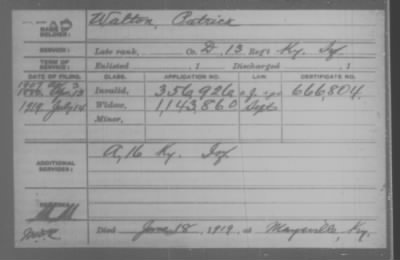 NAME OF SOLDIER: Walton, Patrick
SERVICE: Late rank, Co. D, 13 Reg't Ky. Inf
TERM OF SERVICE: Enlisted , 1 Discharged , 1
DATE OF FILING. CLASS. APPLICATION NO. LAW. CERTIFICATE NO.
1907 Invalid, 356926 666,804.
Widow, 1,143,860
1919 July 14
Minor,
ADDITIONAL SERVICES: A, 16 Ky. Inf
Died June 18, 1919, at Maysville, Ky.